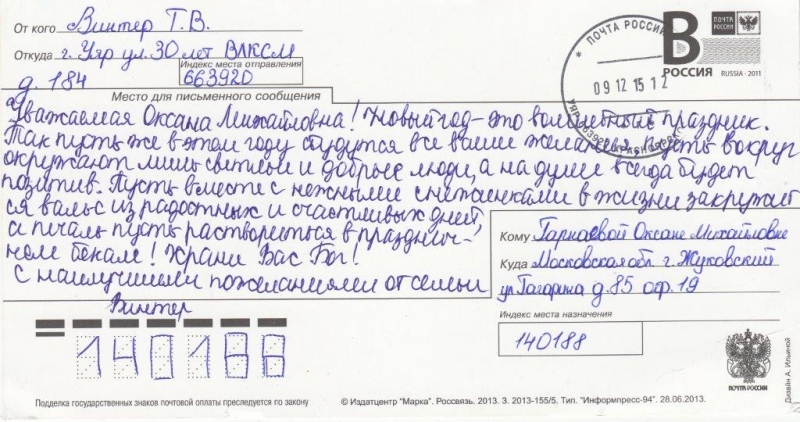 От кого Винтер Т.В.
Откуда г. Уяр ул. 30 лет ВЛКСМ
Индекс места отправления
д. 184 663920
Место для письменного сообщения
Уважаемая Оксана Михайловна! Новый год-это волшебный праздник.
Так пусть же в этом году сбудутся все ваши желания, пусть вокруг
окружают лишь светлые и добрые люди, а на душе всегда будет
позитив. Пусть вместе с нежными снежинками в жизни закружит
ся вальс из радостных и счастливых дней,
а печаль пусть растворится в празднич-
ном бокале! Храни Вас Бог!
С наилучшими пожеланиями от семьи
Винтер
ПОЧТА РОССИИ
09 12 15 12
ПОЧТА РОССИИ
B
РОССИЯ
RUSSIA · 2011
Кому Гарнаевой Оксане Михайловне
Куда Московская обл. г. Жуковский
ул Гагарина д. 85 оф. 19
Индекс места назначения
140188
140188
ПОЧТА РОССИИ
Дизайн А. Ильиной
Подделка государственных знаков почтовой оплаты преследуется по закону
© Издатцентр "Марка". Россвязь. 2013. З. 2013-155/5. Тип. "Информпресс-94". 28.06.2013.